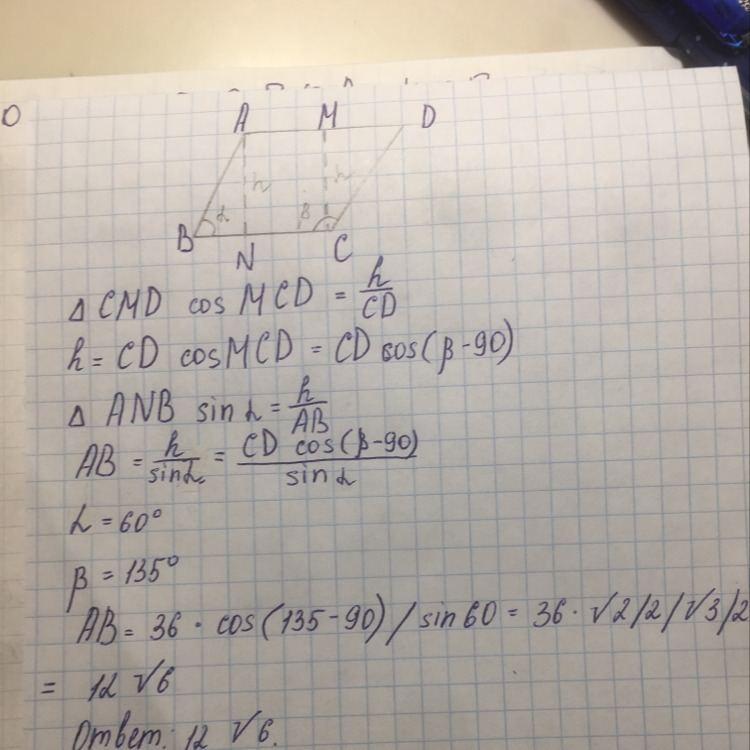 A M D
h h
B α β
N C
Δ CMD cos MCD = h/CD
h = CD cosMCD = CD cos(β-90)
Δ ANB sin α = h/AB
AB = h/sin α = CD cos(β-90)/sin α
α = 60°
β = 135°
AB = 36 · cos(135-90)/sin60 = 36 · √2/2/√3/2
= 12 √6
Ответ: 12 √6.